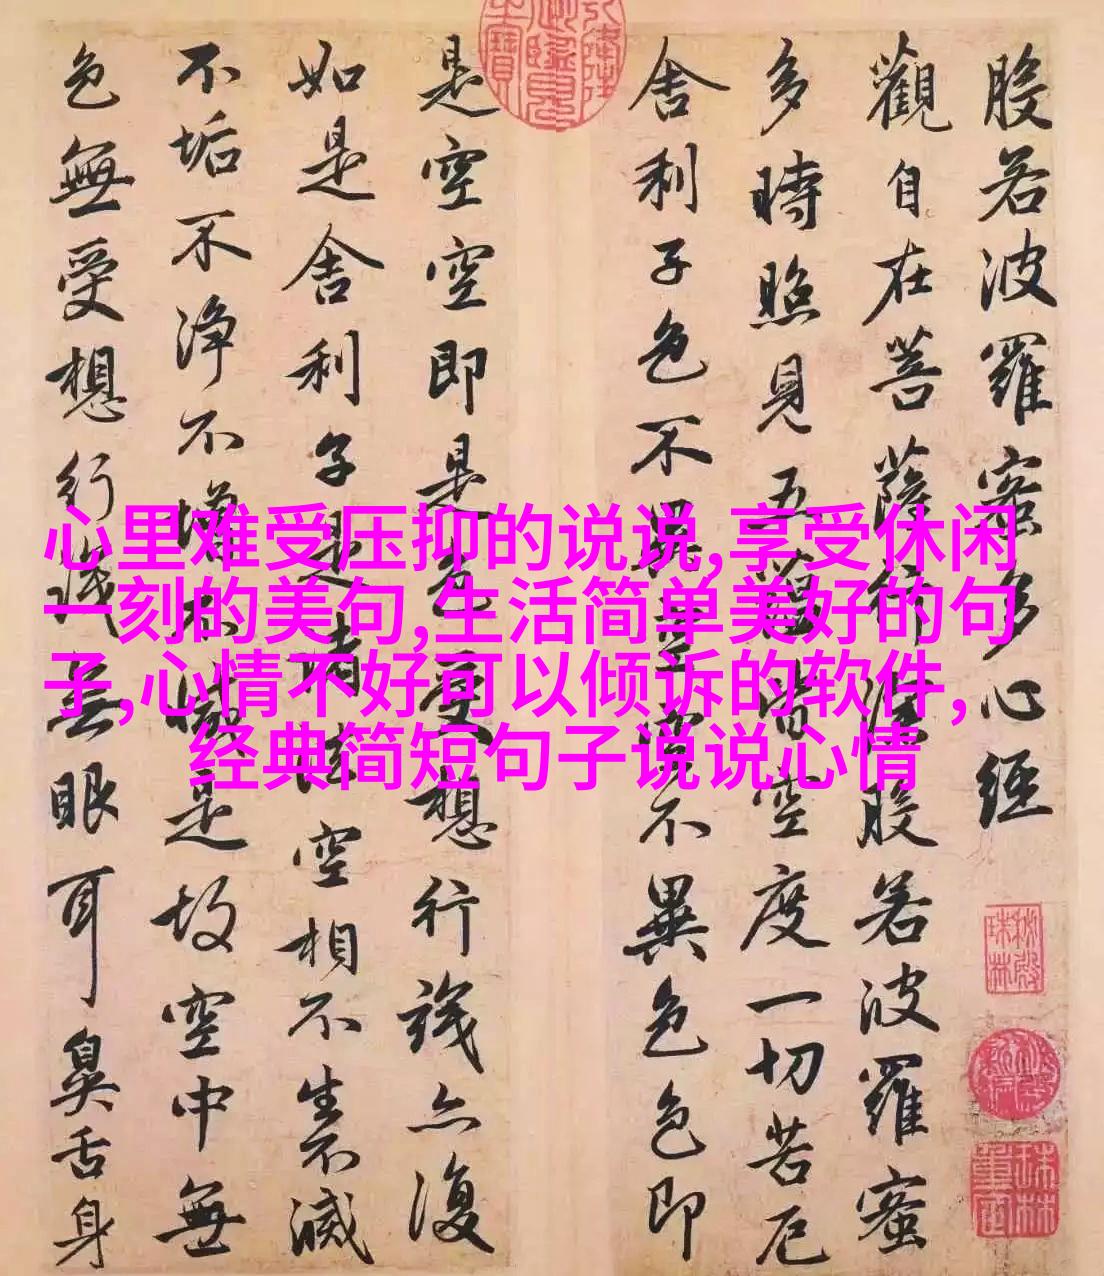 般若波羅蜜多心經
觀自在菩薩行深般若波羅蜜
多時照見五蘊皆空度一切苦厄
舍利子色不異空空不異色色即
是空空即是色受想行識亦復
如是舍利子是諸法空相不生不滅
不垢不淨不增不減是故空中無
色無受想行識無眼耳鼻舌身
心里难受压抑的说说,享受休闲
一刻的美句,生活简单美好的句
子,心情不好可以倾诉的软件,
经典简短句子说说心情